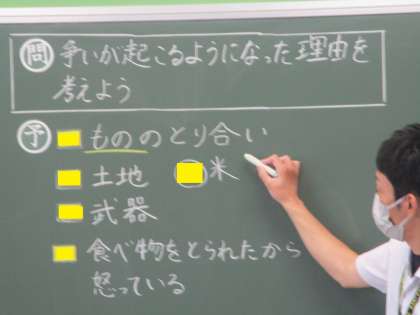 問 争いが起こるようになった理由を
考えよう
予 もののとり合い
土地 米
武器
食べ物をとられたから
怒っている